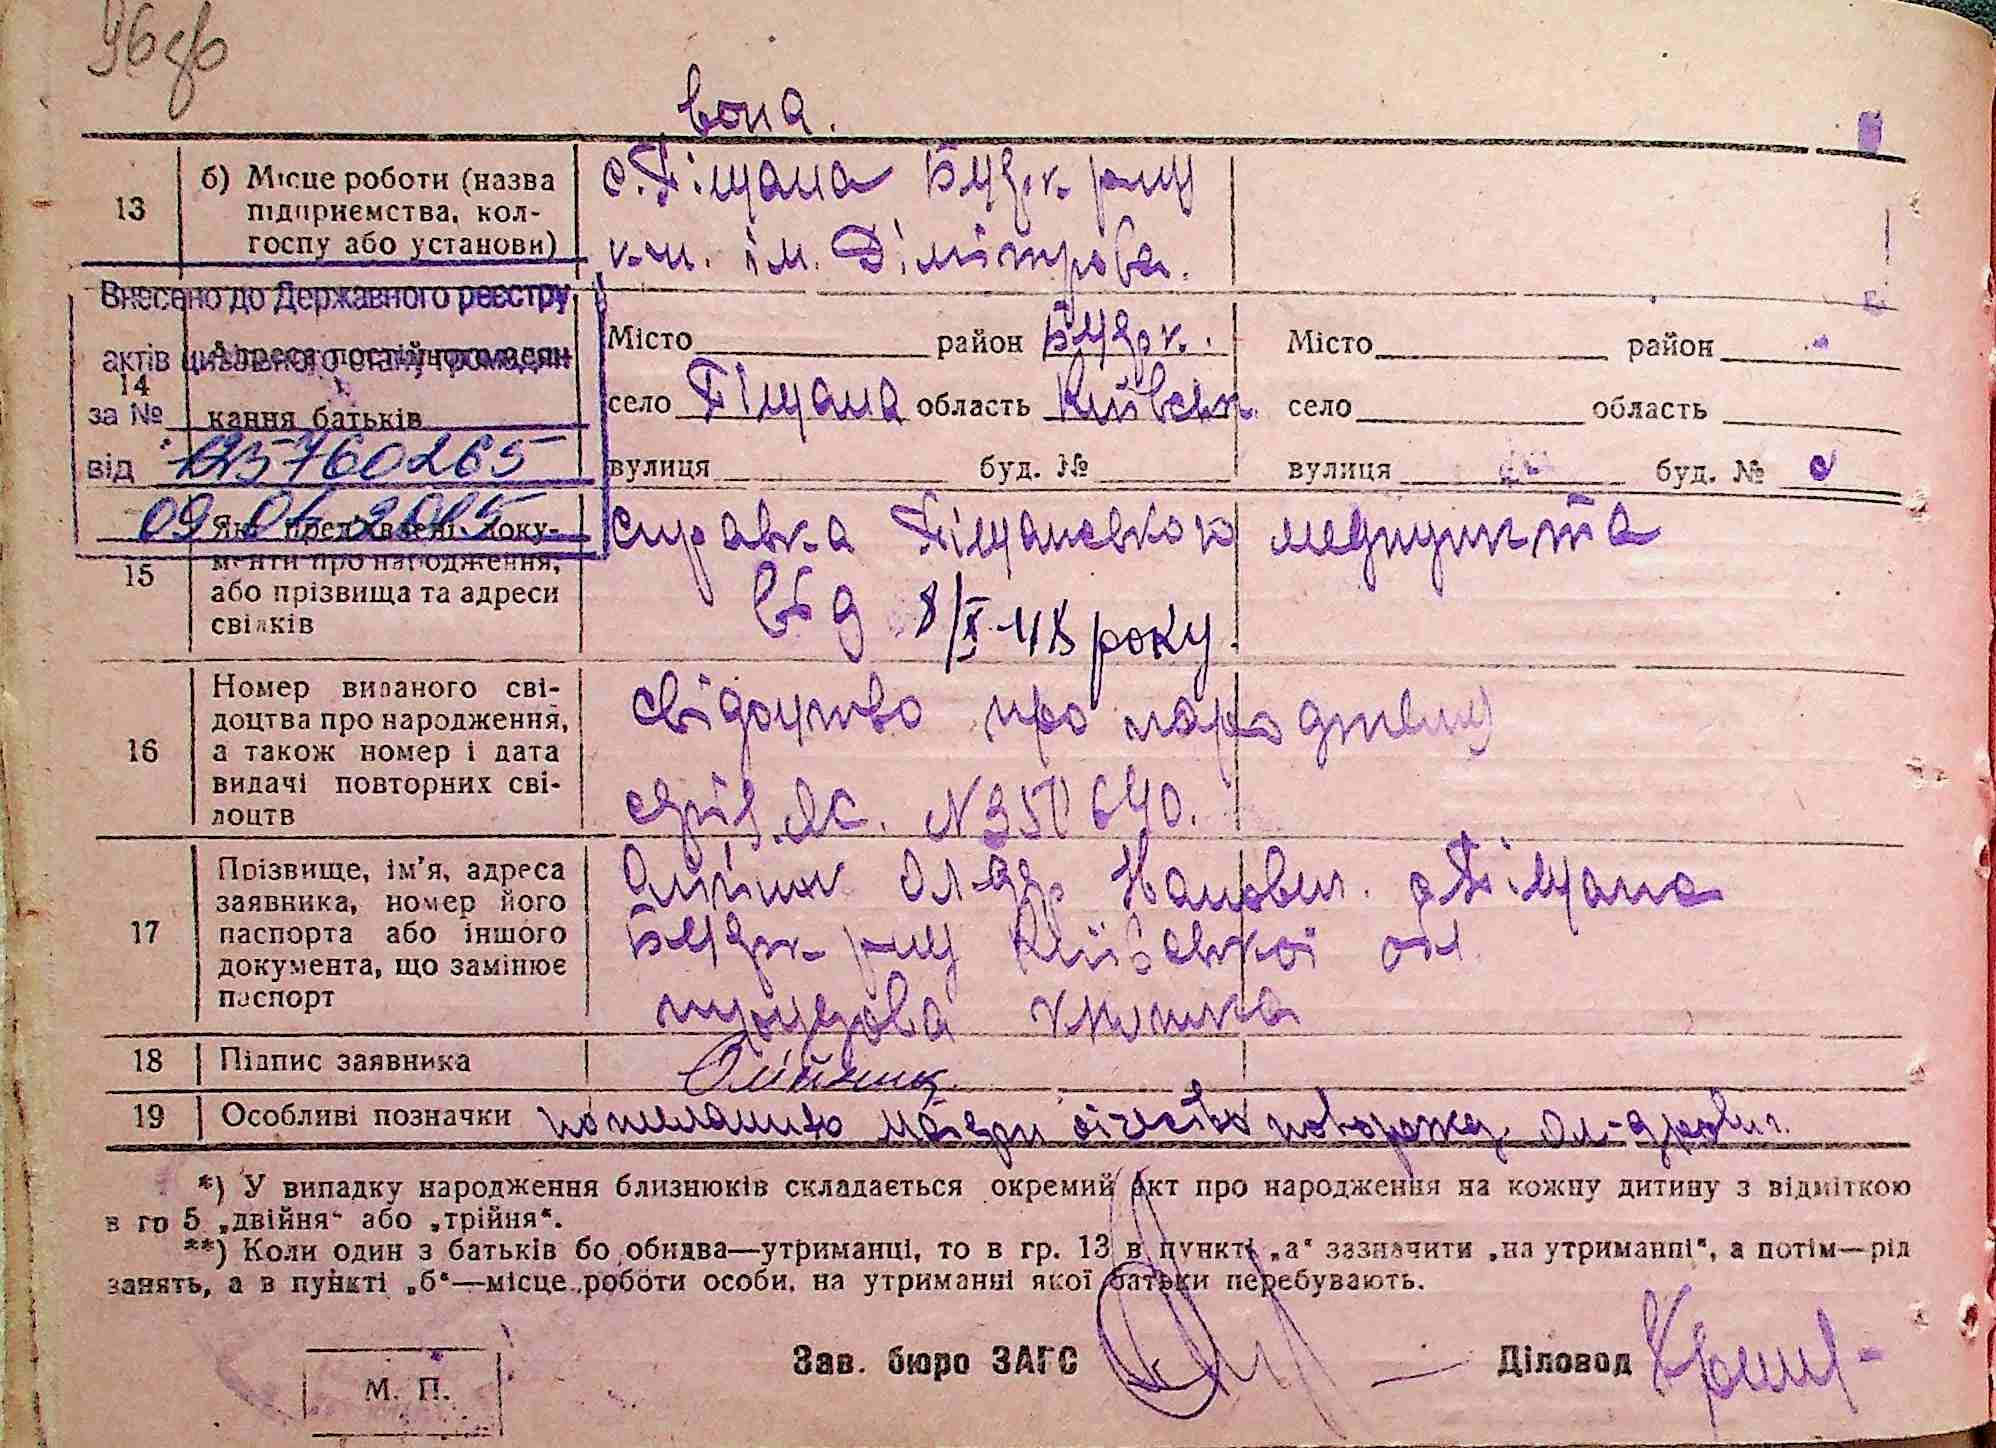 96 зв
вона.
13 б) Місце роботи (назва підприємства, колгоспу або установи)
с. Піщана Бузьк. р-ну
к-п. ім. Дімітрова.
Внесено до Державного реєстру
актів цивільного стану громадян
за №
125760265
від
09 2015
14 Адреса постійного кання батьків
Місто район Бузьк.
село Піщана область Київськ.
вулиця буд. №
Місто район
село область
вулиця буд. №
15 Які пред'явлені доку-
менти про народження,
або прізвища та адреси
свідків
справка Піщанського медпункта
від 8/X-48 року.
16 Номер виданого сві-
доцтва про народження,
а також номер і дата
видачі повторних сві-
доцтв
свідоцтво про народження
серія ЯС. №
17 Прізвище, ім'я, адреса
заявника, номер його
паспорта або іншого
документа, що замінює
паспорт
Олійник Ол-др с Піщана
р-ну Київської обл.
трудова книжка
18 Підпис заявника
Олійник
19 Особливі позначки по желанию матери Ол-дрович.
*) У випадку народження близнюків складається окремий акт про народження на кожну дитину з відміткою
в гр 5 „двійня“ або „трійня“.
**) Коли один з батьків бо обидва—утриманці, то в гр. 13 в пункті „а“ зазначити „на утриманні“, а потім—рід
занять, а в пункті „б“—місце роботи особи, на утриманні якої батьки перебувають.
М. П.
Зав. бюро ЗАГС
Діловод